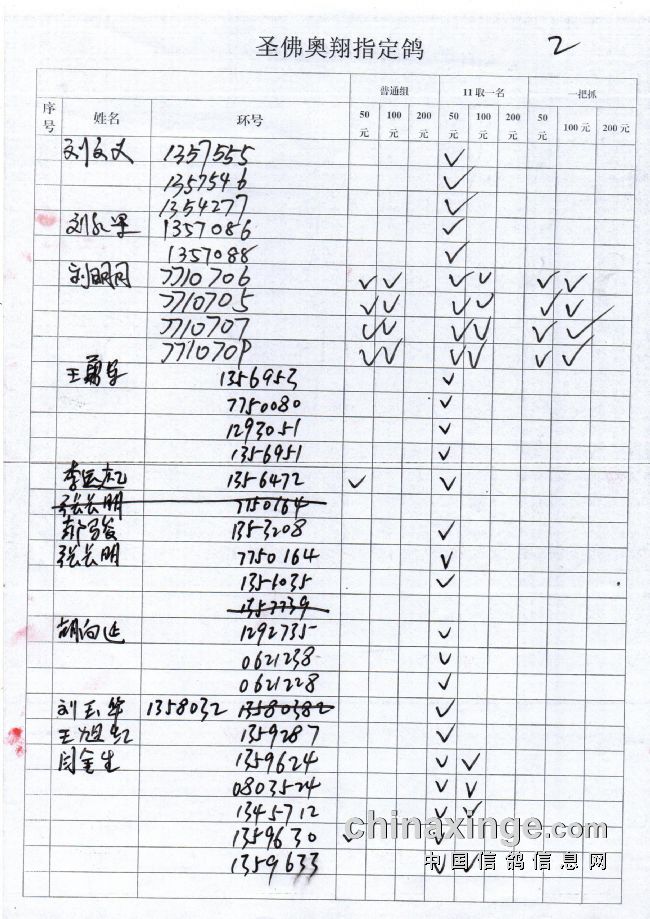 圣佛奥翔指定鸽 2
普通组 11取一名 一把抓
序号 姓名 环号 50元 100元 200元 50元 100元 200元 50元 100元 200元
刘文义 1357555 ✓
1357546 ✓
1354277 ✓
刘 1357086 ✓
1357088 ✓
刘明月 7710706 ✓ ✓ ✓ ✓ ✓ ✓
7710705 ✓ ✓ ✓ ✓ ✓ ✓
7710707 ✓ ✓ ✓ ✓ ✓ ✓
771070P ✓ ✓ ✓ ✓ ✓ ✓
王 1356953 ✓
7750080 ✓
1293051 ✓
1356951 ✓
李 1356472 ✓ ✓
张长明 7750164
1353208 ✓
张长明 7750164 ✓
1351035 ✓
1357739
胡向 1292735 ✓
0621238 ✓
0621228 ✓
刘玉华 1358032 13580382 ✓
王旭红 1359287 ✓
闫金生 1359624 ✓ ✓
0803524 ✓ ✓
1345712 ✓ ✓
1359630 ✓ ✓
1359633 ✓ ✓
chinaxinge.com
中国信鸽信息网